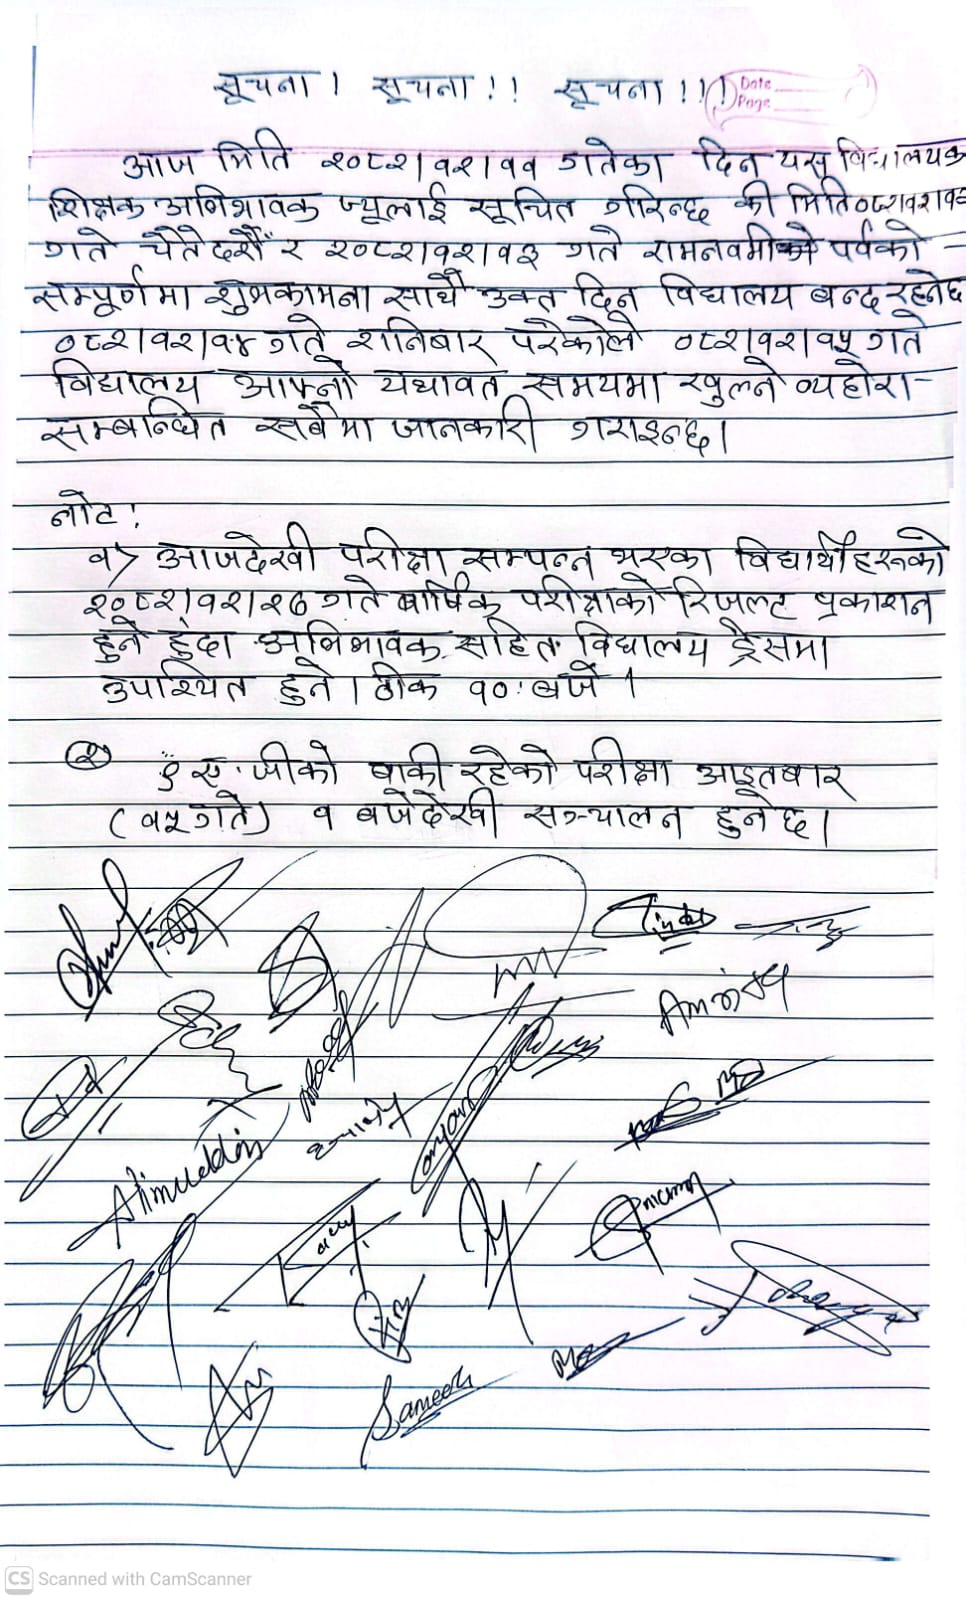 सूचना । सूचना !! सूचना !!!
Date
Page
आज मिति २०८२।१२।११ गतेका दिन यस विद्यालयक
शिक्षक अभिभावक ज्यूलाई सूचित गरिन्छ की मिति०८२।१२।१२
गते चैतेदशैं र २०८२।१२।१३ गते रामनवमीको पर्वको -
सम्पूर्णमा शुभकामना साथै उक्त दिन विद्यालय बन्द रहनेछ
०८२।१२।१४ गते शनिबार परेकोले ०८२।१२।१५ गते
विद्यालय आफ्नो यथावत समयमा खुल्ने व्यहोरा-
सम्बन्धित सबैमा जानकारी गराइन्छ।
नोट :
१> आजदेखी परीक्षा सम्पन्न भएका विद्यार्थीहरूको
२०८२।१२।२७ गते बार्षिक परीक्षाको रिजल्ट प्रकाशन
हुने हुंदा अभिभावक सहित विद्यालय ड्रेसमा
उपस्थित हुने । ठीक १०: बजे ।
२ ई.एल.जीको बाकी रहेको परीक्षा आइतबार
(१५ गते) १ बजेदेखी सञ्चालन हुनेछ।
Alimuddin
Sameek
CS Scanned with CamScanner